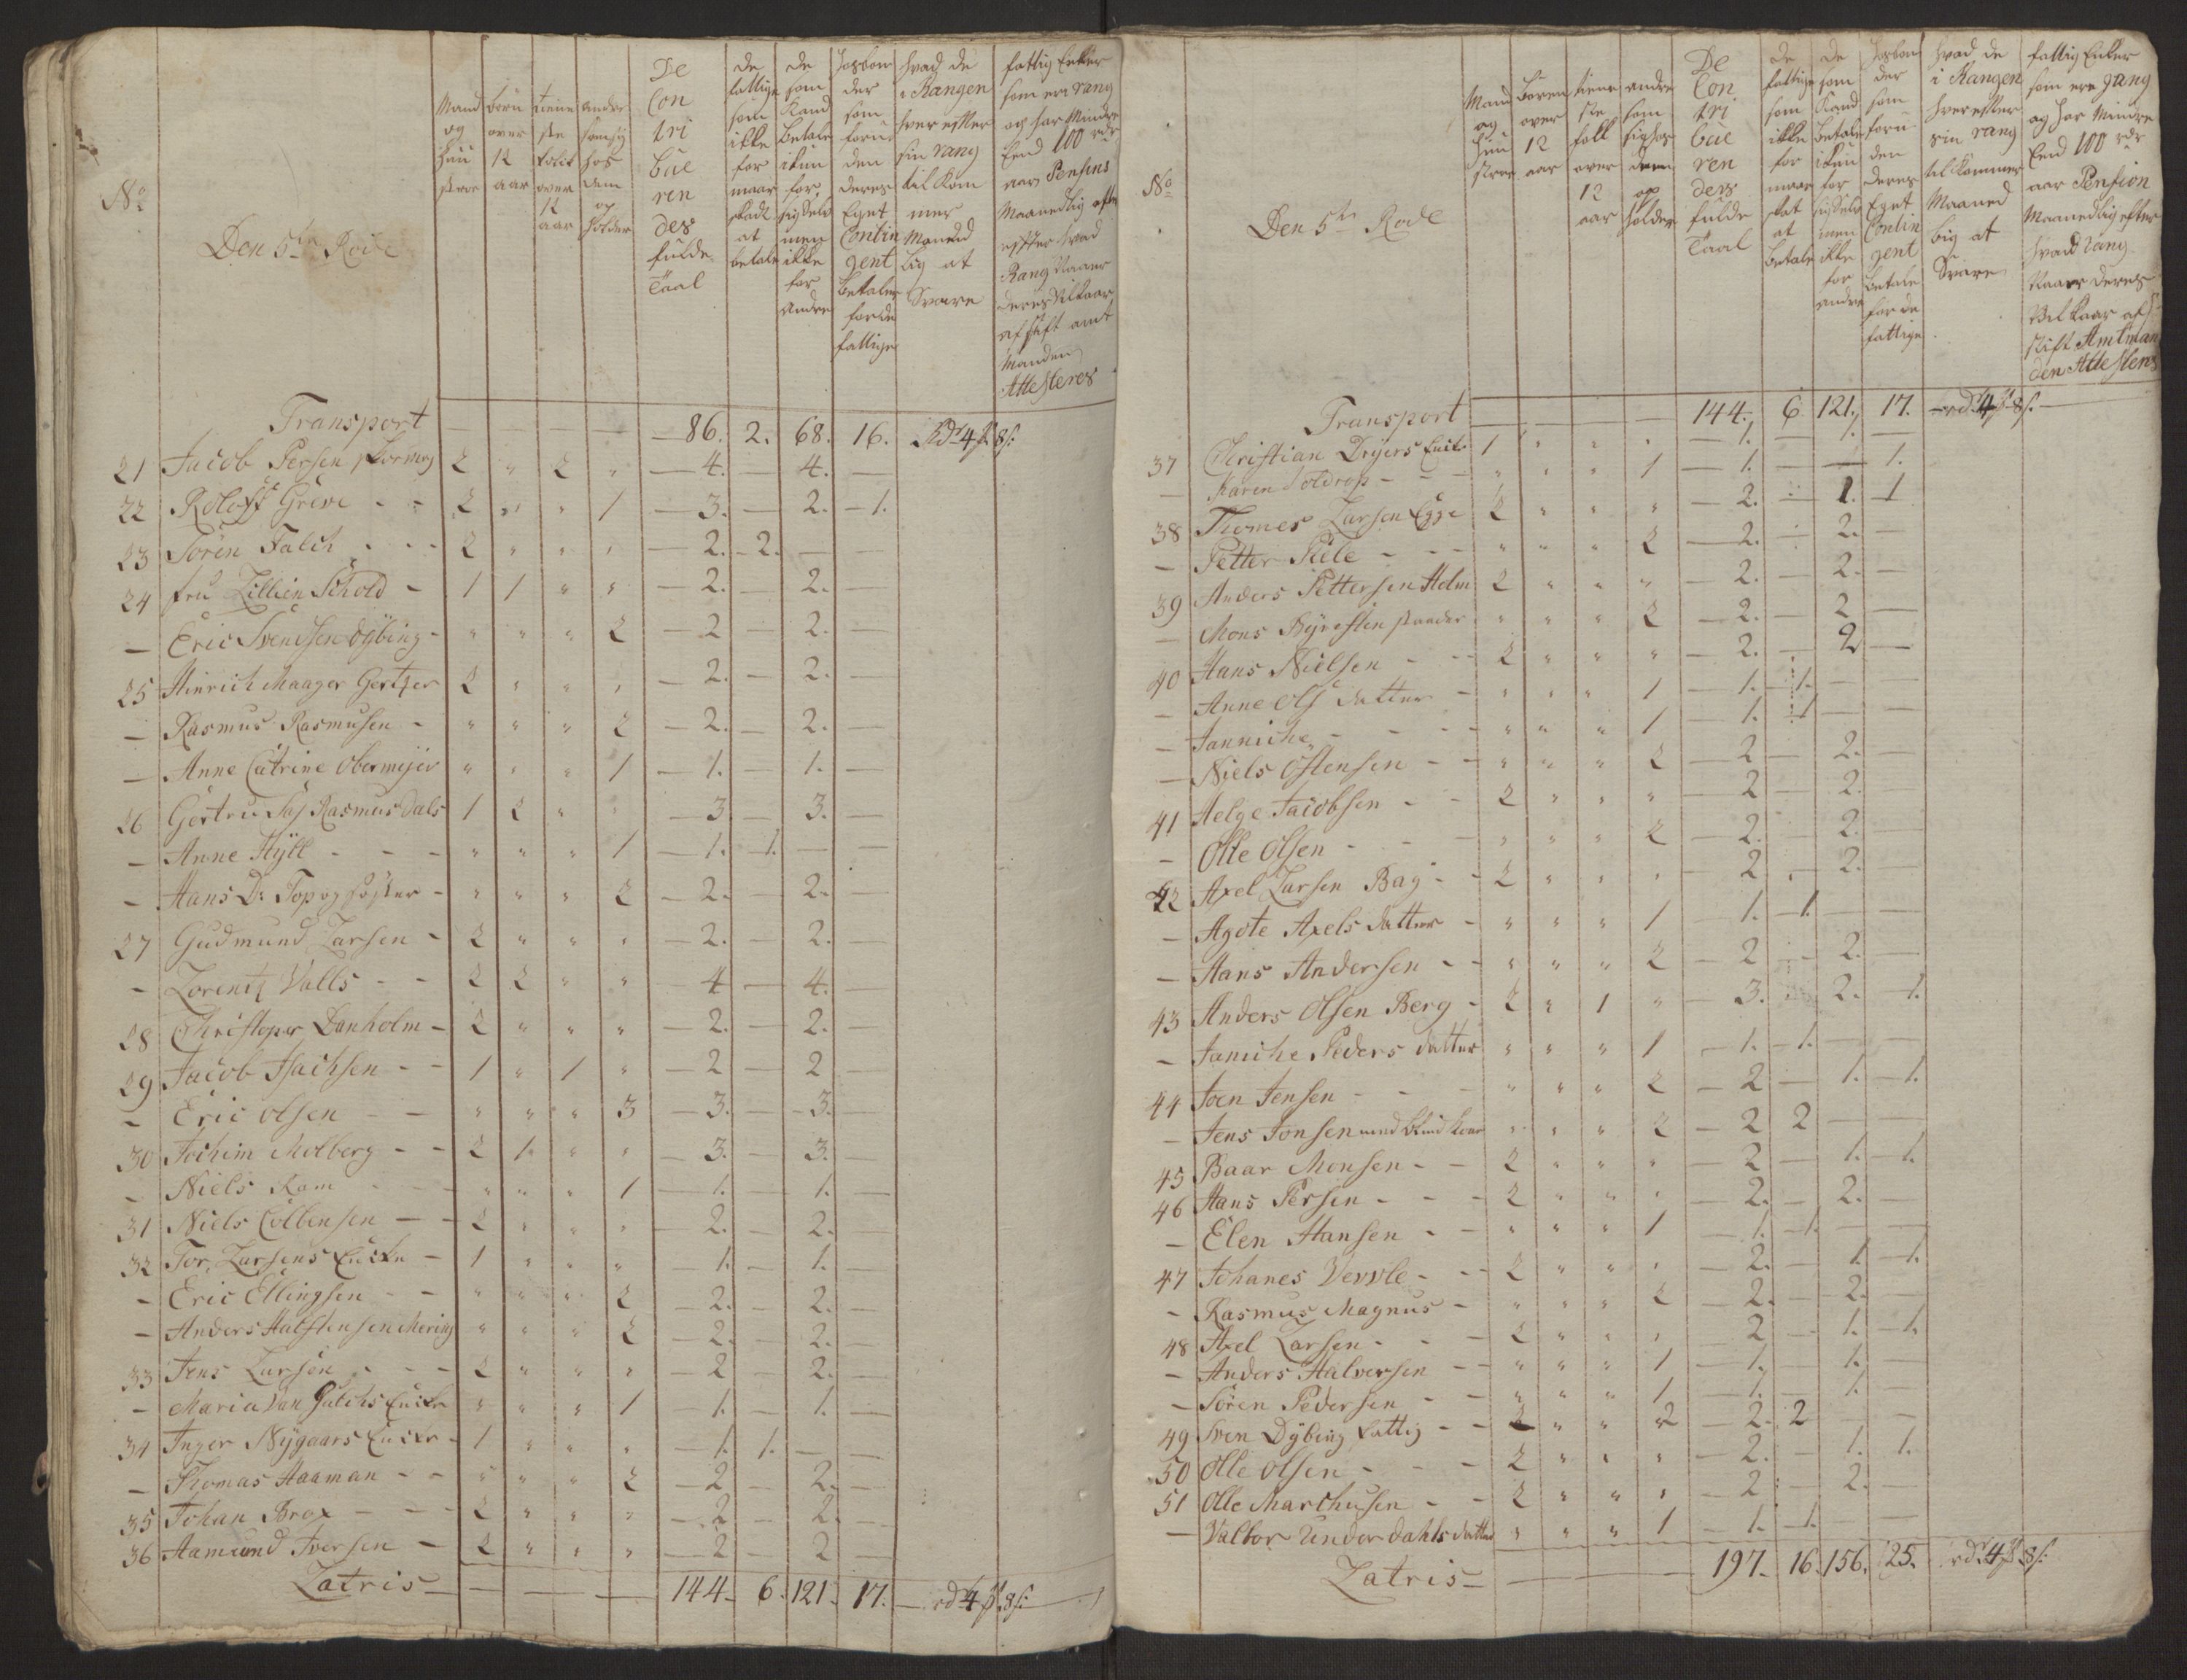 No
Den 5te Rode
Mand og Hustrue
børn over 12 aar
tieneste folk over 12 aar
andre som sig hos dem opholder
De Contribuerendes fulde Taal
de fattige som ikke formaar skatt at betale
de som kand betale ikun for sig selv men ikke for andre
Hosbonder som foruden deres Eget Contingent betaler for de fattige
hvad de i Rangen hver efter sin rang tilkommer Maanedlig at Svare
fattig Enker som ere rang og har Mindre End 100 rdr aar Pensins Maanedlig efter hvad Rang Naar deres Vilkaar af stift amtmanden Attesteres
Transport — — — — 86. 2. 68. 16. Rdr 4 ß 8 s:
21 Jacob Persen 2 " 2 " — 4. — 4. —
22 Roloff Greve - - 2 " " 1 — 3. — 2. — 1.
23 Sören Falch - - 2 " " " — 2. — 2. — —
24 fru Zillien Schold - 1 1 " " — 2. — 2. —
— Eric Svendsen Dybing - " " " 2 — 2 — 2. —
25 Hinrich Maager Gertzer 2 " " " — 2. — 2. —
— Rasmus Rasmusen - " " " 2 — 2. — 2. —
— Anne Catrine Obermejer " " " 1 — 1. — 1. —
26 Gertru Sal Rasmus Dals 1 2 " " — 3 — 3. —
— Anne Hyll - - - " " " 1 — 1. — 1. — —
— Hans Dr Top og søster - " " " 2 — 2. — 2. —
27 Gudmund Larsen - 2 " " " — 2. — 2. —
- Lorentz Valls - - 2 2 " " 4 — 4. —
28 Christoper Danholm - 2 " " " — 2. — 2. —
29 Jacob Isachsen - - 1 " 1 " — 2 — 2 —
- Eric olsen - - " " " 3 — 3. — 3. —
30 Jochim Molberg - - 2 1. " " — 3. — 3. —
- Niels Ram - - " " " 1 — 1. — 1. —
31 Niels Colbensen — - 2 " " " — 2. — 2. —
32 Tor Larsens Encke - 1 " " " — 1. — 1. —
- Eric Ellingsen - - " " " 2 — 2. — 2. —
- Anders Halstensen Mering " " " 2 — 2. — 2. —
33 Jens Larsen - - - 2 " " " — 2 — 2. —
- Maria Van Gulichs Encke " " " 1 — 1. — 1. —
34 Inger Nygaars Encke - 1 " " " — 1. 1. — —
— Thomas Haaman - - " " " 2 — 2 — 2. —
35 Johan Brox - - - 2 " " " — 2 — 2. —
36 Aamund Iversen - 2 " " " — 2 — 2 —
Latris — — — 144. 6. 121. 17. — rdr 4 ß 8 s:
No
Den 5te Rode
Mand og Hustrue
Børen over 12 aar
tieneste folk over 12 aar
andre som sig hos dem opholder
De Contribuerendes fulde Taal
de fattige som ikke formaar skat at betale
de som kand betale ikun for sig selv men ikke for andre
Hosbonder som foruden deres Eget Contingent betale for de fattige
Hvad de i Rangen hver efter sin rang tilkommer Maanedlig at Svare
fattig Enker som ere rang og har Mindre End 100 rdr aar Pension Maanedlig efter hvad rang Naar deres Vilkaar af Stift Amtmanden Attesteres
Transport — — — — 144. 6. 121. 17. rdr 4 ß 8 s: —
37 Christian Dryers Encke 1 " " " — 1. — 1. —
— Karen Toldrop - - - " " " 1 — 1. — — 1.
38 Thomes Larsen Egge 2 " " " — 2. — 1. — 1
— Petter Pele - - - " " " 2 — 2. — 2. —
39 Anders Pettersen Holm 2 " " " — 2. — 2. —
— Mons Byresten " " " 2 — 2. — 2 —
40 Hans Nielsen - - 2 " " " — 2. — 2 —
— Anne Ols datter - " " " 1 — 1. — 1. — —
— Jannicke - - - " " " 1 — 1. — 1 — —
— Niels Ostensen - - " " " 2 — 2 — 2. —
41 Helge Jacobsen - - 2 " " " — 2 — 2. —
— Olle Olsen - - - " " " 2 — 2. — 2. —
42 Axel Larsen Bag - - 2 " " " — 2 — 2. —
— Agote Axels datter - " " " 1 — 1. — 1. — —
— Hans Andersen - - " " " 2 — 2 — 2. —
43 Anders Olsen Berg - 2 " 1 " — 3. 2. — 1.
— Janiche Peders datter " " " 1 — 1. — 1. — —
44 Joen Jensen - - - " " " 2 — 2 — 1. — 1.
— Jens Jonsen med blind kone " " " 2 — 2 2 — —
45 Baar Monsen - - 2 " " " — 2 — 1. — 1.
46 Hans Persen - - - 2 " " " — 2. — 2. —
— Elen Hansen - - " " " 1 — 1. — 1. — —
47 Johanes Vervle - - 2 " " " — 2. — 1. — 1.
- Rasmus Magnus - " " " 2 — 2. — 2. —
48 Axel Larsen - - - 2 " " " 2 — 1. — 1.
— Anders Halversen - - " " " 1 — 1. — 1. —
— Sören Pedersen - - " " " 1 — 1. — 1. —
49 Sven Dybing fattig - - " " 2 — 2. 2 — —
50 Olle olsen - - - 2 " " " — 2. — 1. 1.
51 Olle Marthusen - - 2 " " " — 2 — 2. —
— Valbor Underdahls datter " " " 1 — 1. — 1. — —
Latris — — — 197. 16. 156. 25. rdr 4 ß 8 s: